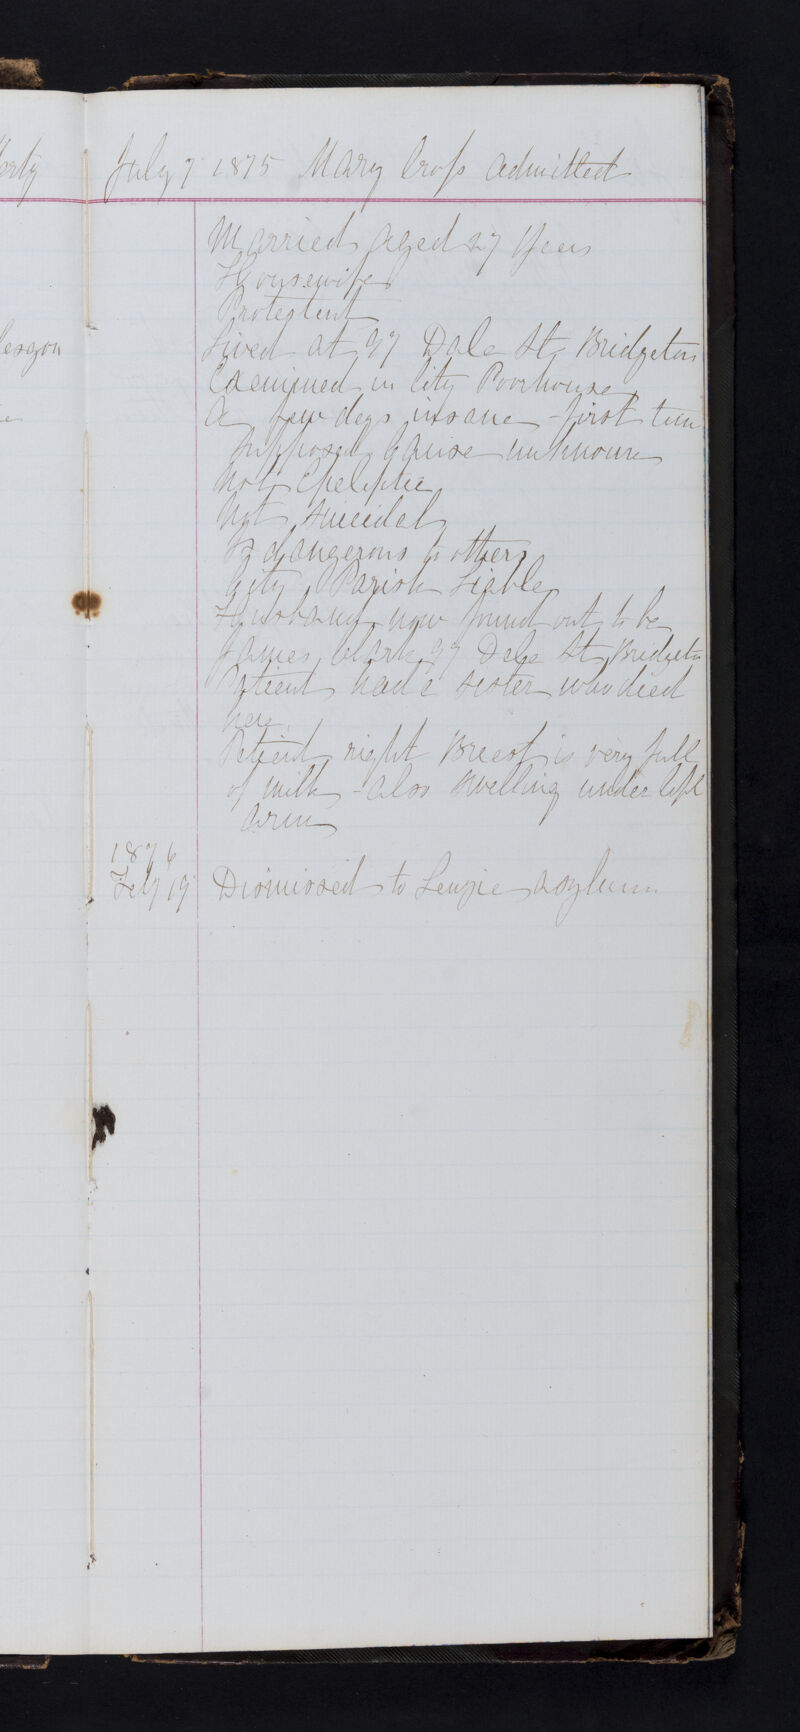 July 7 1875 Mary Cross admitted
Married aged 27 Years
Housewife
Protestant
Lived at 97 Dale St Bridgeton
Examined in City Poorhouse
A few days insane - first time
Supposed Cause unknown
Not Epeleptic
Not Suicidal
Is dangerous to others
City Parish Liable
Husband now found out to be
James Clark 97 Dale St Bridgeton
Patient had a sister who died
here
Patient right Breast is very full
of milk - also swelling under left
arm
1876
Feby 19 Dismissed to Lenzie asylum